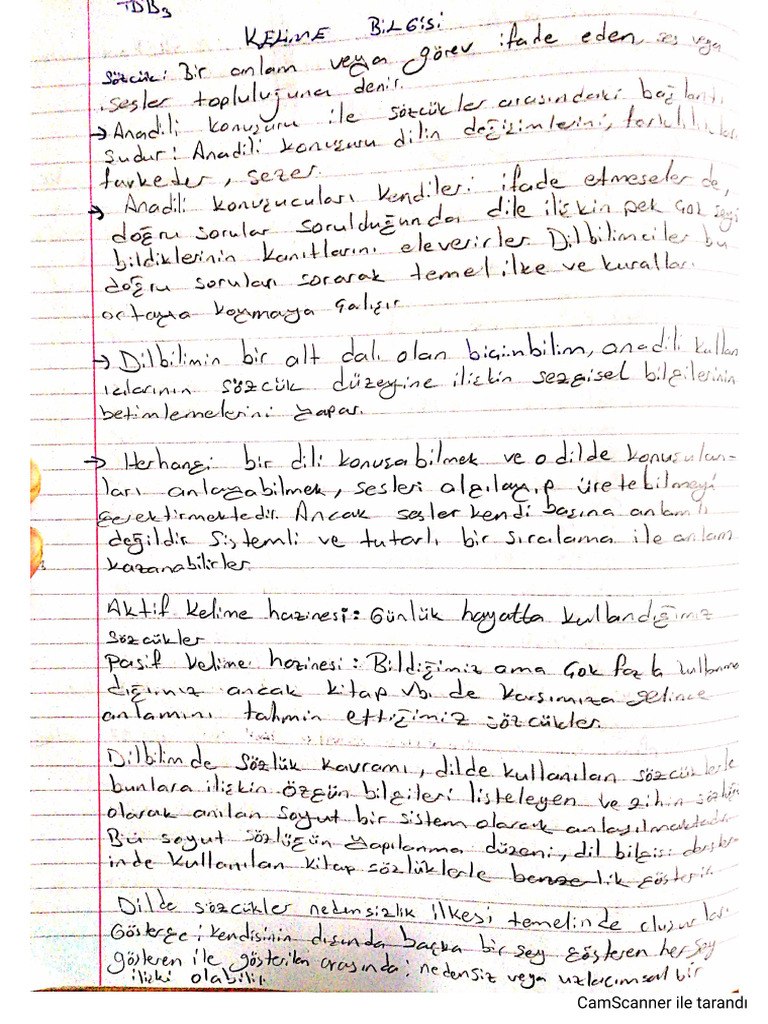 TDB3
KELİME BİLGİSİ
Sözcük: Bir anlam veya görev ifade eden, ses veya
sesler topluluğuna denir.
→ Anadili konuşuru ile sözcükler arasındaki bağlantı
şudur: Anadili konuşuru dilin değişimlerini, farklılıkları
farkeder, sezer.
→ Anadili konuşucuları kendileri ifade etmeseler de,
doğru sorular sorulduğunda dile ilişkin pek çok şeyi
bildiklerinin kanıtlarını eleverirler. Dilbilimciler bu
doğru soruları sorarak temel ilke ve kuralları
ortaya koymaya çalışır
→ Dilbilimin bir alt dalı olan biçimbilim, anadili kullan
ıcılarının sözcük düzeyine ilişkin sezgisel bilgilerinin
betimlemelerini yapar.
→ Herhangi bir dili konuşabilmek ve o dilde konuşulan-
ları anlayabilmek, sesleri algılayıp üretebilmeyi
gerektirmektedir. Ancak sesler kendi başına anlamlı
değildir sistemli ve tutarlı bir sıralama ile anlam
kazanabilirler.
Aktif kelime hazinesi: Günlük hayatta kullandığımız
sözcükler
Pasif kelime hazinesi: Bildiğimiz ama çok fazla kullanma
dığımız ancak kitap vb de karşımıza gelince
anlamını tahmin ettiğimiz sözcükler.
Dilbilimde sözlük kavramı, dilde kullanılan sözcüklerle
bunlara ilişkin özgün bilgileri listeleyen ve zihin sözlüğü
olarak anılan soyut bir sistem olarak anlaşılmaktadır
Bu soyut sözlüğün yapılanma düzeni, dil bilgisi dersler
inde kullanılan kitap sözlüklerle benzerlik gösterir.
Dilde sözcükler nedensizlik ilkesi temelinde oluşurlar.
Gösterge; kendisinin dışında başka bir şey gösteren her şey
gösteren ile gösterilen arasında; nedensiz veya uzlaşımsal bir
ilişki olabilir.
CamScanner ile tarandı